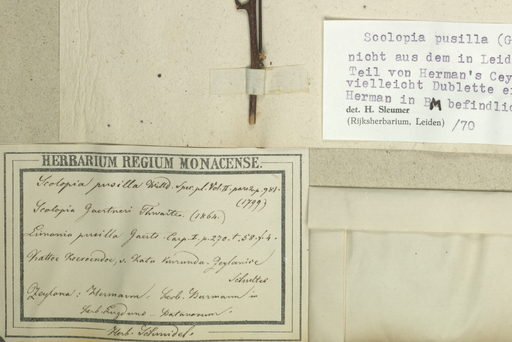 Scolopia pusilla (G
nicht aus dem in Leid
Teil von Herman's Cey
vielleicht Dublette e
Herman in BM befindlic
det. H. Sleumer
(Rijksherbarium, Leiden) /70
HERBARIUM REGIUM MONACENSE.
Scolopia pusilla Willd. Spec. pl. Vol. II. pars 2 p. 981.
(1799)
Scolopia Gaertneri Thwaites. (1864.)
Limonia pusilla Gaertn. Carp. I. p. 270. t. 58. f. 4.
Katu Kurunda Zeylanice
Schultes
Zeylona: Hermann. Herb. Burmann in
Herb. Lugduno-Batavorum.
Herb. Schmidel.